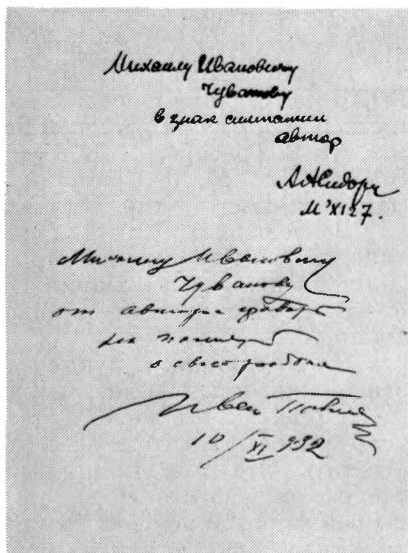 Михаилу Ивановичу
Чуванову
в знак симпатии
автор
А. Сидоров
М XI 27.
Михаилу Ивановичу
Чуванову
от автора гравюр
на память
о своей работе
Иван Павлов
10/XI 932